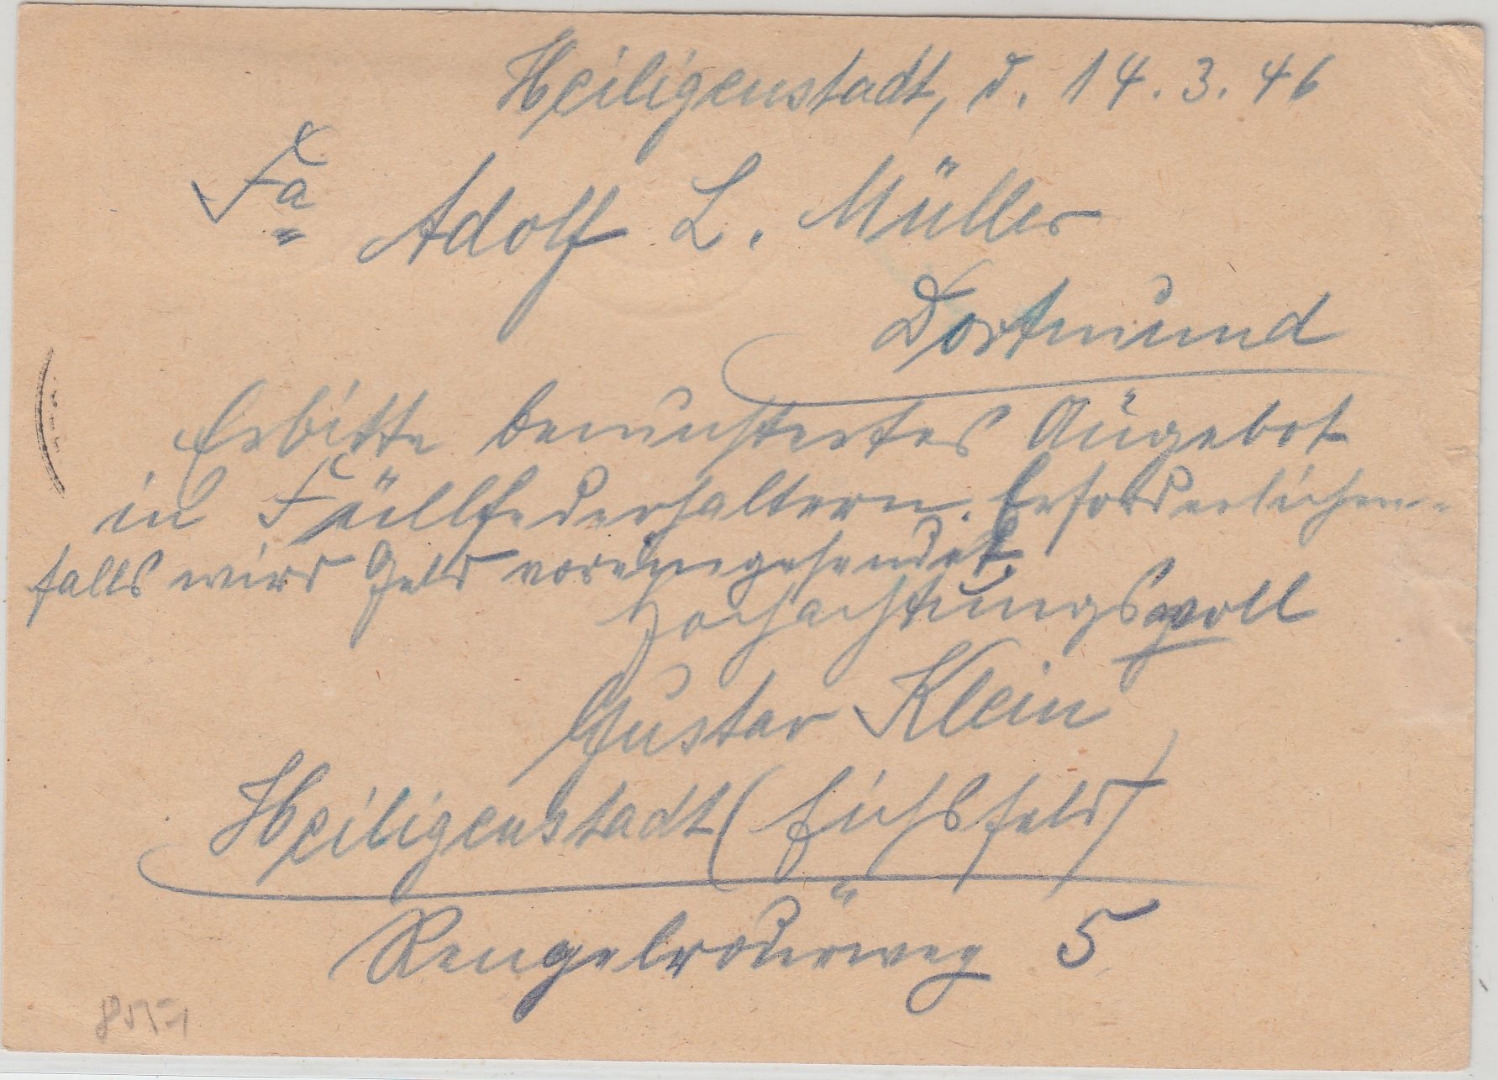 Heiligenstadt, d. 14.3.46
Fa
Adolf L. Müller
Dortmund
Erbitte bemustertes Angebot
in Füllfederhaltern. Erforderlichen-
falls wird Geld voreingesendet.
Hochachtungsvoll
Gustav Klein
Heiligenstadt (Eichsfeld)
Rengelröderweg 5